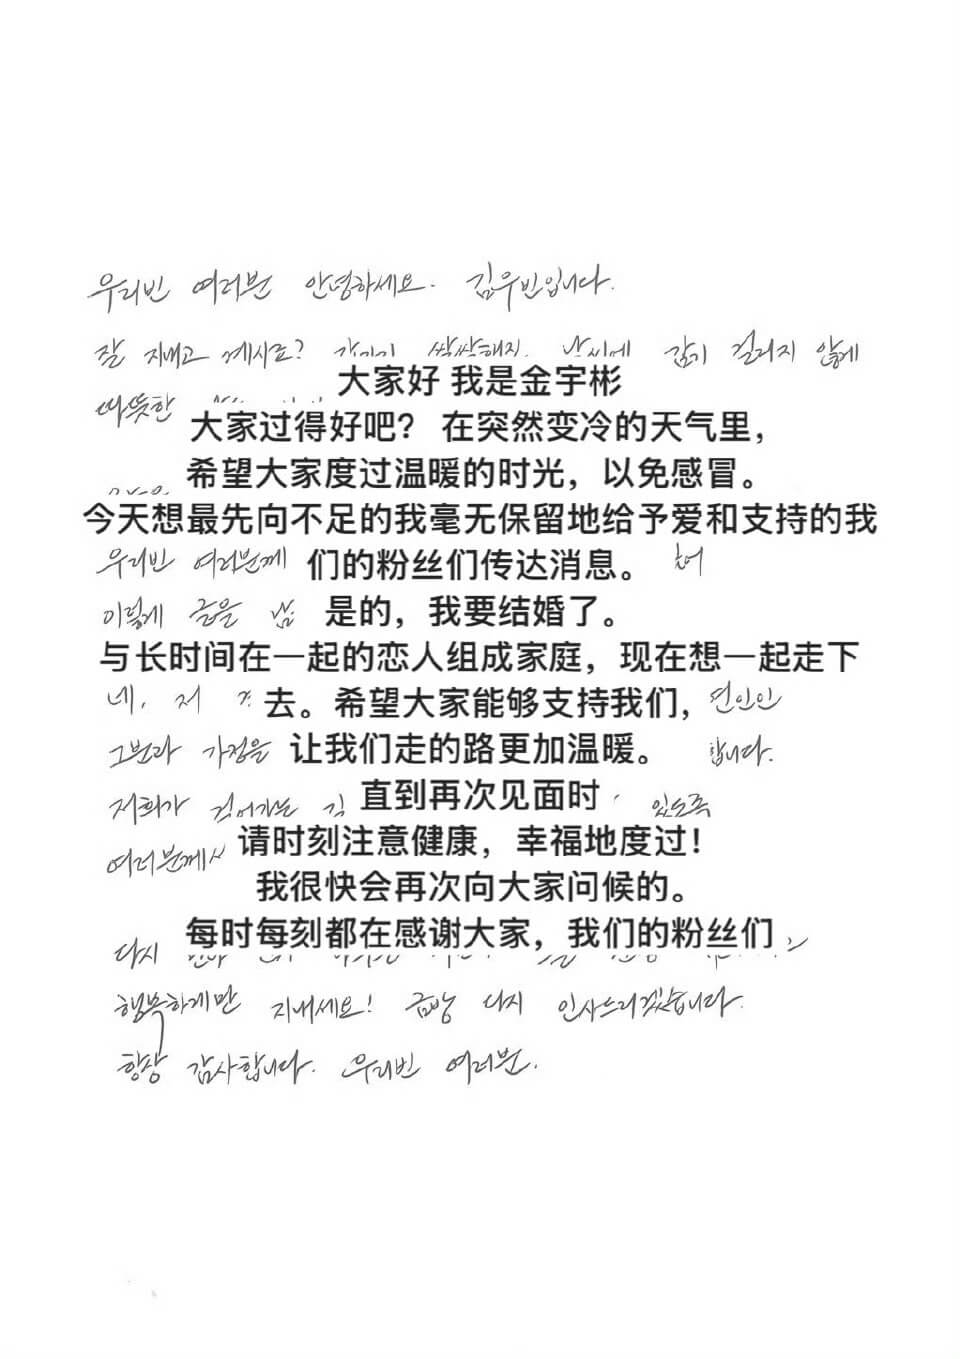 우리빈 여러분 안녕하세요. 김우빈입니다.
잘 지내고 계시죠? 날씨에 감기 걸리지 않게
大家好 我是金宇彬
따뜻한
大家过得好吧？ 在突然变冷的天气里，
希望大家度过温暖的时光，以免感冒。
今天想最先向不足的我毫无保留地给予爱和支持的我
우리빈 여러분께 们的粉丝们传达消息。
이렇게 글을 是的，我要结婚了。
与长时间在一起的恋人组成家庭，现在想一起走下
네, 저 去。希望大家能够支持我们, 연인인
그분과 가정을 让我们走的路更加温暖。 합니다.
저희가 걸어가는 直到再次见面时 있도록
여러분께서 请时刻注意健康，幸福地度过！
我很快会再次向大家问候的。
다시 每时每刻都在感谢大家，我们的粉丝们
행복하게만 지내세요! 금방 다시 인사드리겠습니다.
항상 감사합니다. 우리빈 여러분.